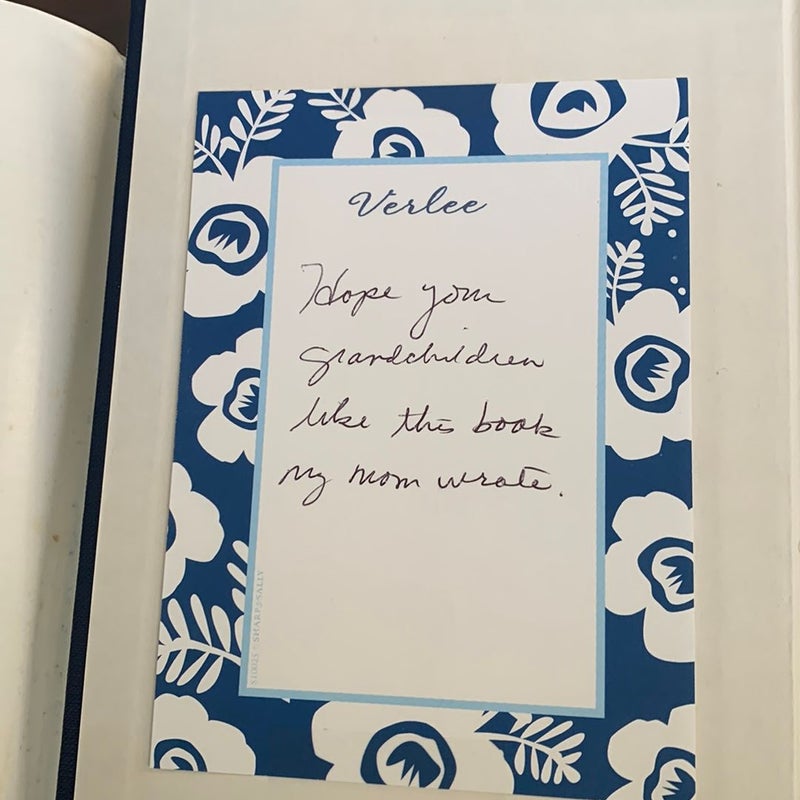 Verlee
Hope your
grandchildren
like this book
my mom wrote.
SHARP & SALLY